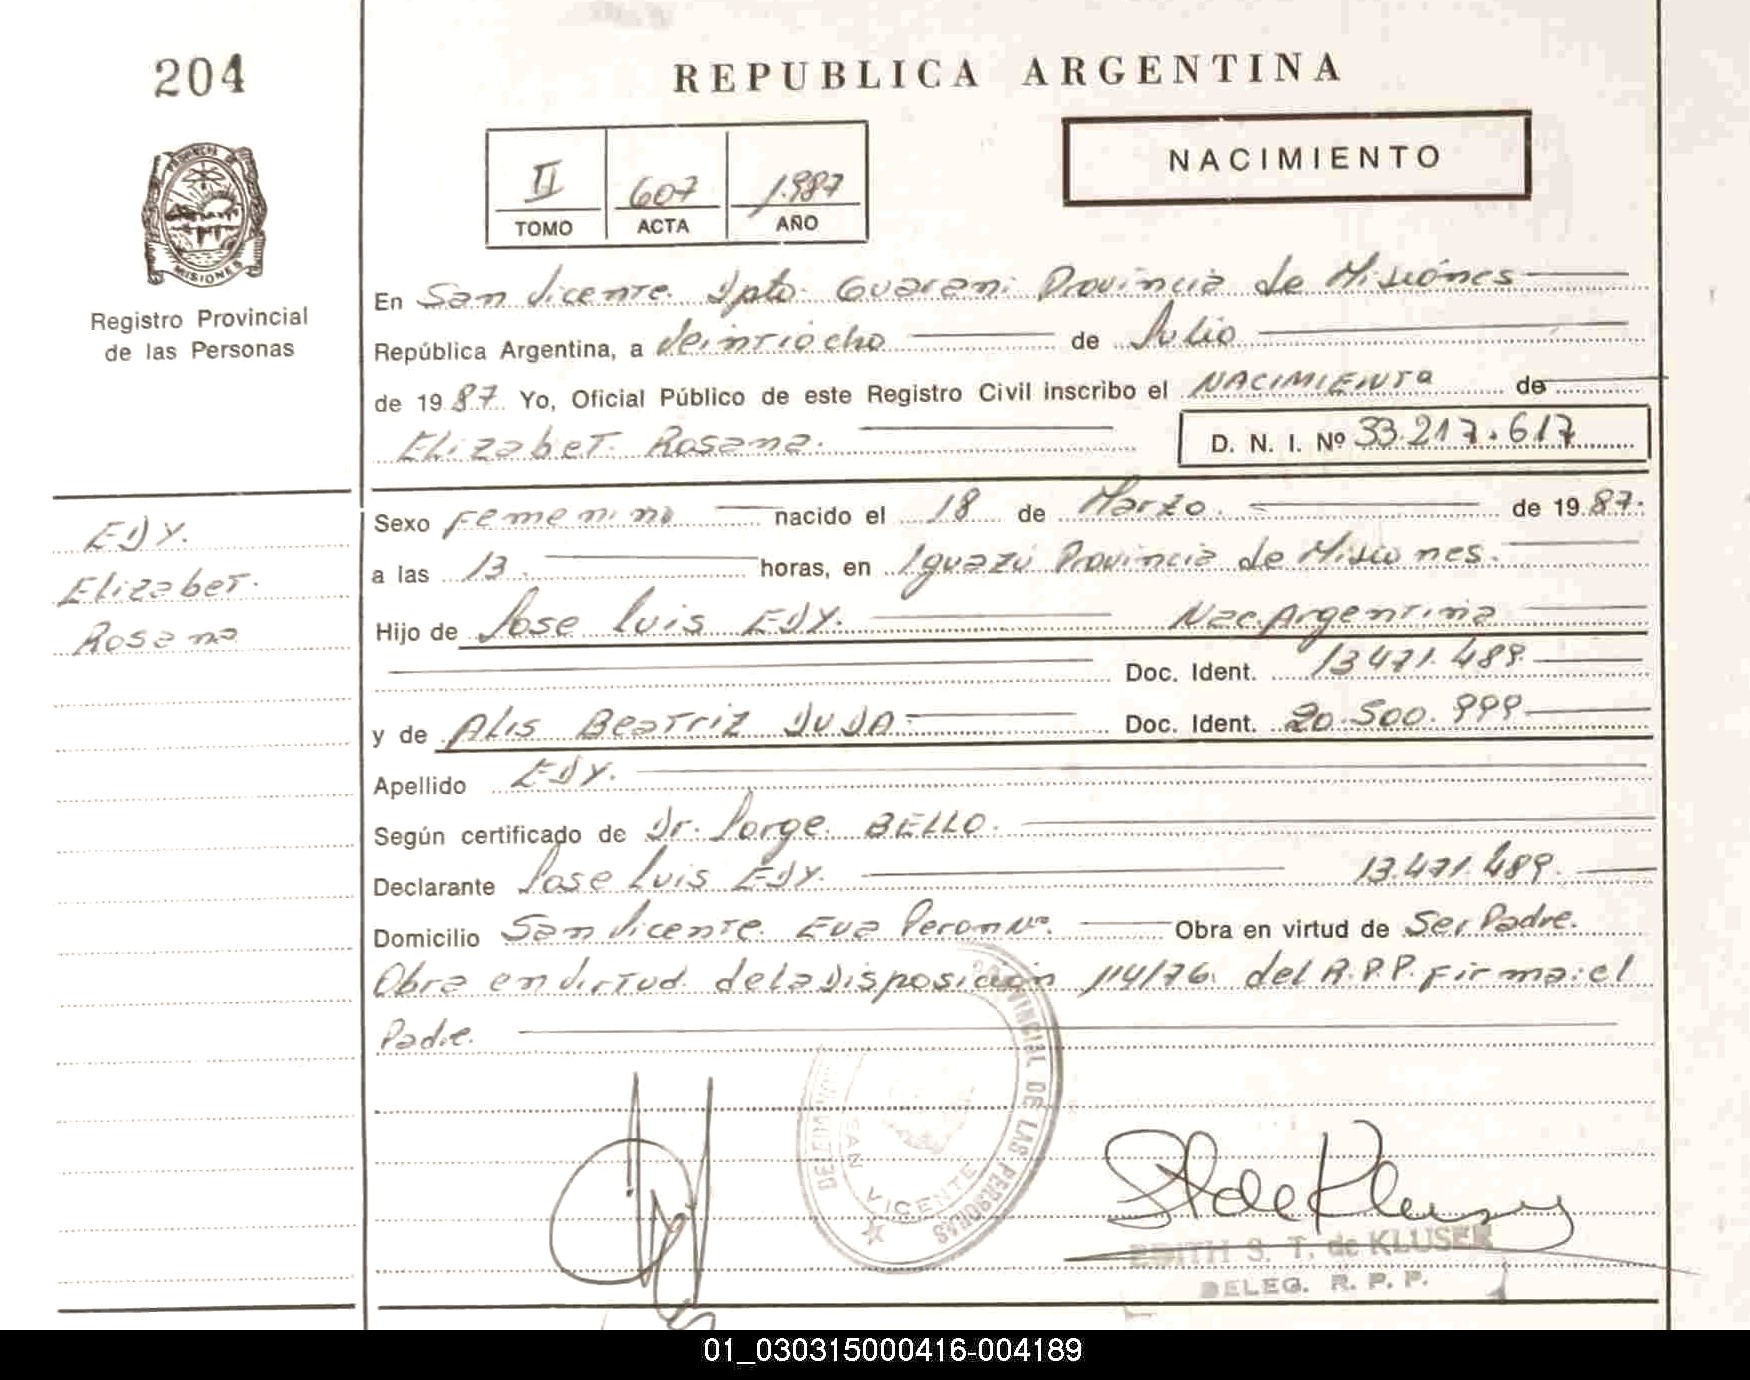 204
REPUBLICA ARGENTINA
NACIMIENTO
II 607 1.987
TOMO ACTA AÑO
PROVINCIA DE
MISIONES
Registro Provincial
de las Personas
En San Vicente. Dpto. Guarani Provincia de Misiones
República Argentina, a Veintiocho de Julio
de 1987. Yo, Oficial Público de este Registro Civil inscribo el NACIMIENTO de
Elizabet. Rosana. D. N. I. Nº 33.217.617
EDY.
Elizabet.
Rosana
Sexo Femenino nacido el 18 de Marzo. de 1987.
a las 13. horas, en Iguazú Provincia de Misiones.
Hijo de Jose Luis EDY. Nac. Argentina
Doc. Ident. 13.471.489.
y de Alis Beatriz DUDA. Doc. Ident. 20.500.999
Apellido EDY.
Según certificado de Dr. Jorge BELLO.
Declarante Jose Luis EDY. 13.471.489.
Domicilio San Vicente. Eva Peron Nº. Obra en virtud de Ser Padre.
Obra en Virtud de la Disposición 114/76. del R.P.P. Firma: el
Padre.
PROVINCIAL DE LAS PERSONAS
SAN VICENTE
EDITH S. T. de KLUSER
DELEG. R. P. P.
01_030315000416-004189